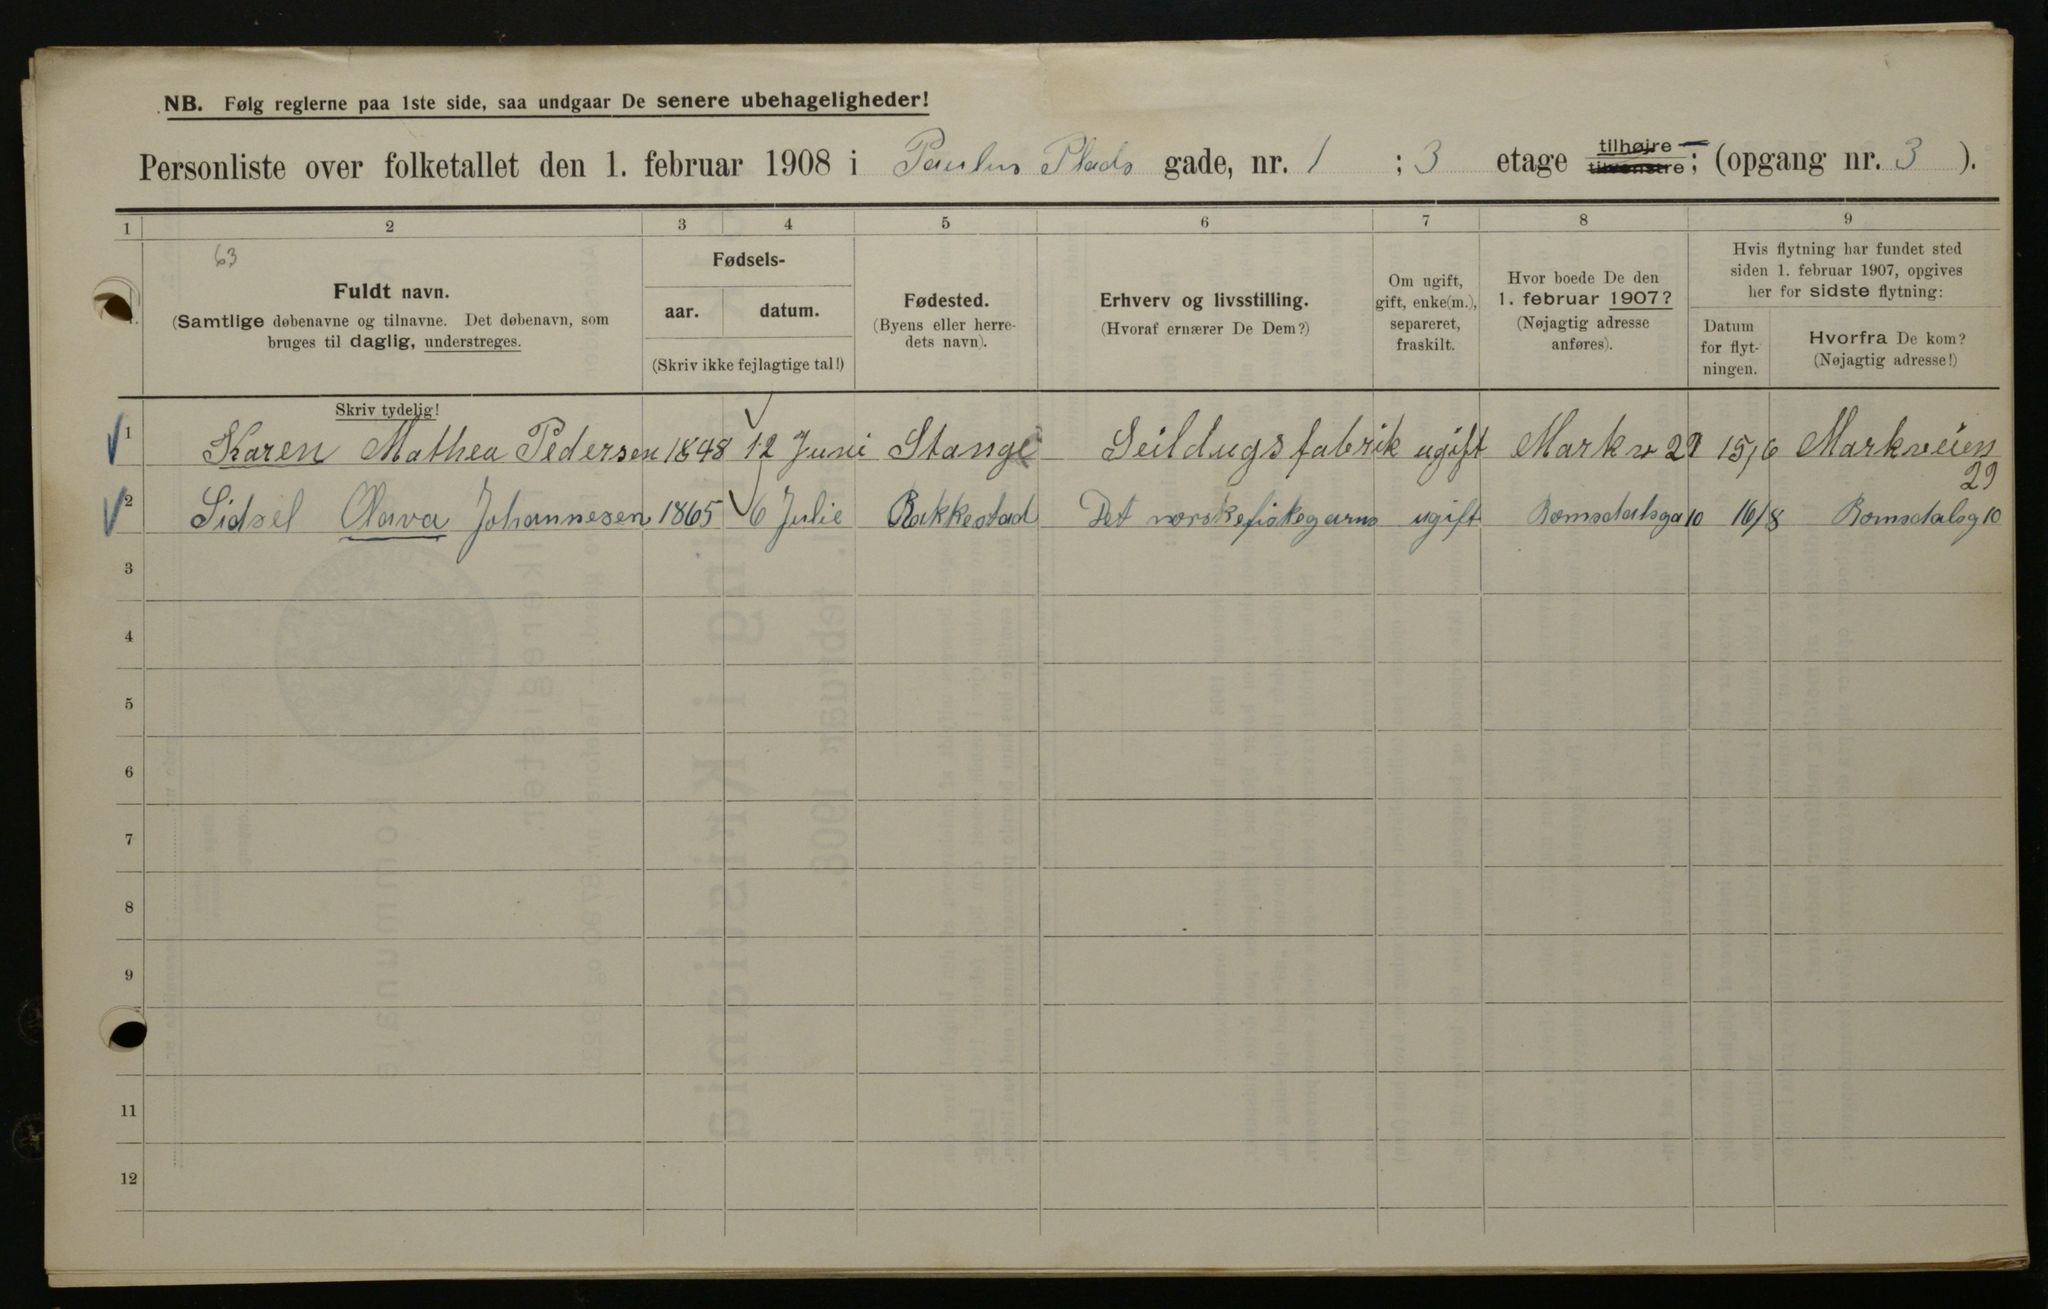 NB. Følg reglerne paa 1ste side, saa undgaar De senere ubehageligheder!
Personliste over folketallet den 1. februar 1908 i Paulus Plads gade, nr. 1 ; 3 etage tilhøjre tilvenstre; (opgang nr. 3 ).
1 2 3 4 5 6 7 8 9
63
Fuldt navn.
(Samtlige døbenavne og tilnavne. Det døbenavn, som
bruges til daglig, understreges.
Skriv tydelig!
Fødsels-
aar. datum.
(Skriv ikke fejlagtige tal!)
Fødested.
(Byens eller herre-
dets navn).
Erhverv og livsstilling.
(Hvoraf ernærer De Dem?)
Om ugift,
gift, enke(m.),
separeret,
fraskilt.
Hvor boede De den
1. februar 1907?
(Nøjagtig adresse
anføres).
Hvis flytning har fundet sted
siden 1. februar 1907, opgives
her for sidste flytning:
Datum
for flyt-
ningen.
Hvorfra De kom?
(Nøjagtig adresse!)
1 Karen Mathea Pedersen 1848 12 Juni Stange Seildugsfabrik ugift Markv 29 15/6 Markveien
29
2 Sidsel Olava Johannesen 1865 6 Julie Rakkestad Det norske fiskegarns ugift Romsdalsga 10 16/8 Romsdalsg 10
3
4
5
6
7
8
9
11
12